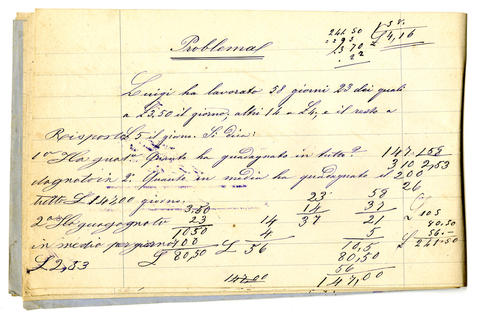 Problema
Luigi ha lavorato 58 giorni 23 dei quali
a £3,50 il giorno, altri 14 a £4, e il resto a
£5 il giorno. Si dica:
1° Quanto ha guadagnato in tutto?
2° Quanto in media ha guadagnato il
giorno?
Risposte
1° Ha gua
dagnato in
tutto £ 14200
2° Ha guadagnato
in media per giorno
£ 2,53
241.50
370
4,16
147 58
310 2,53
200
26
3.50
23
1050
700
£ 80,50
14
4
£ 56
23
14
37
58
37
21
5
10,5
80,50
56
147,00
147.00
105
80.50
56.-
£ 241.50